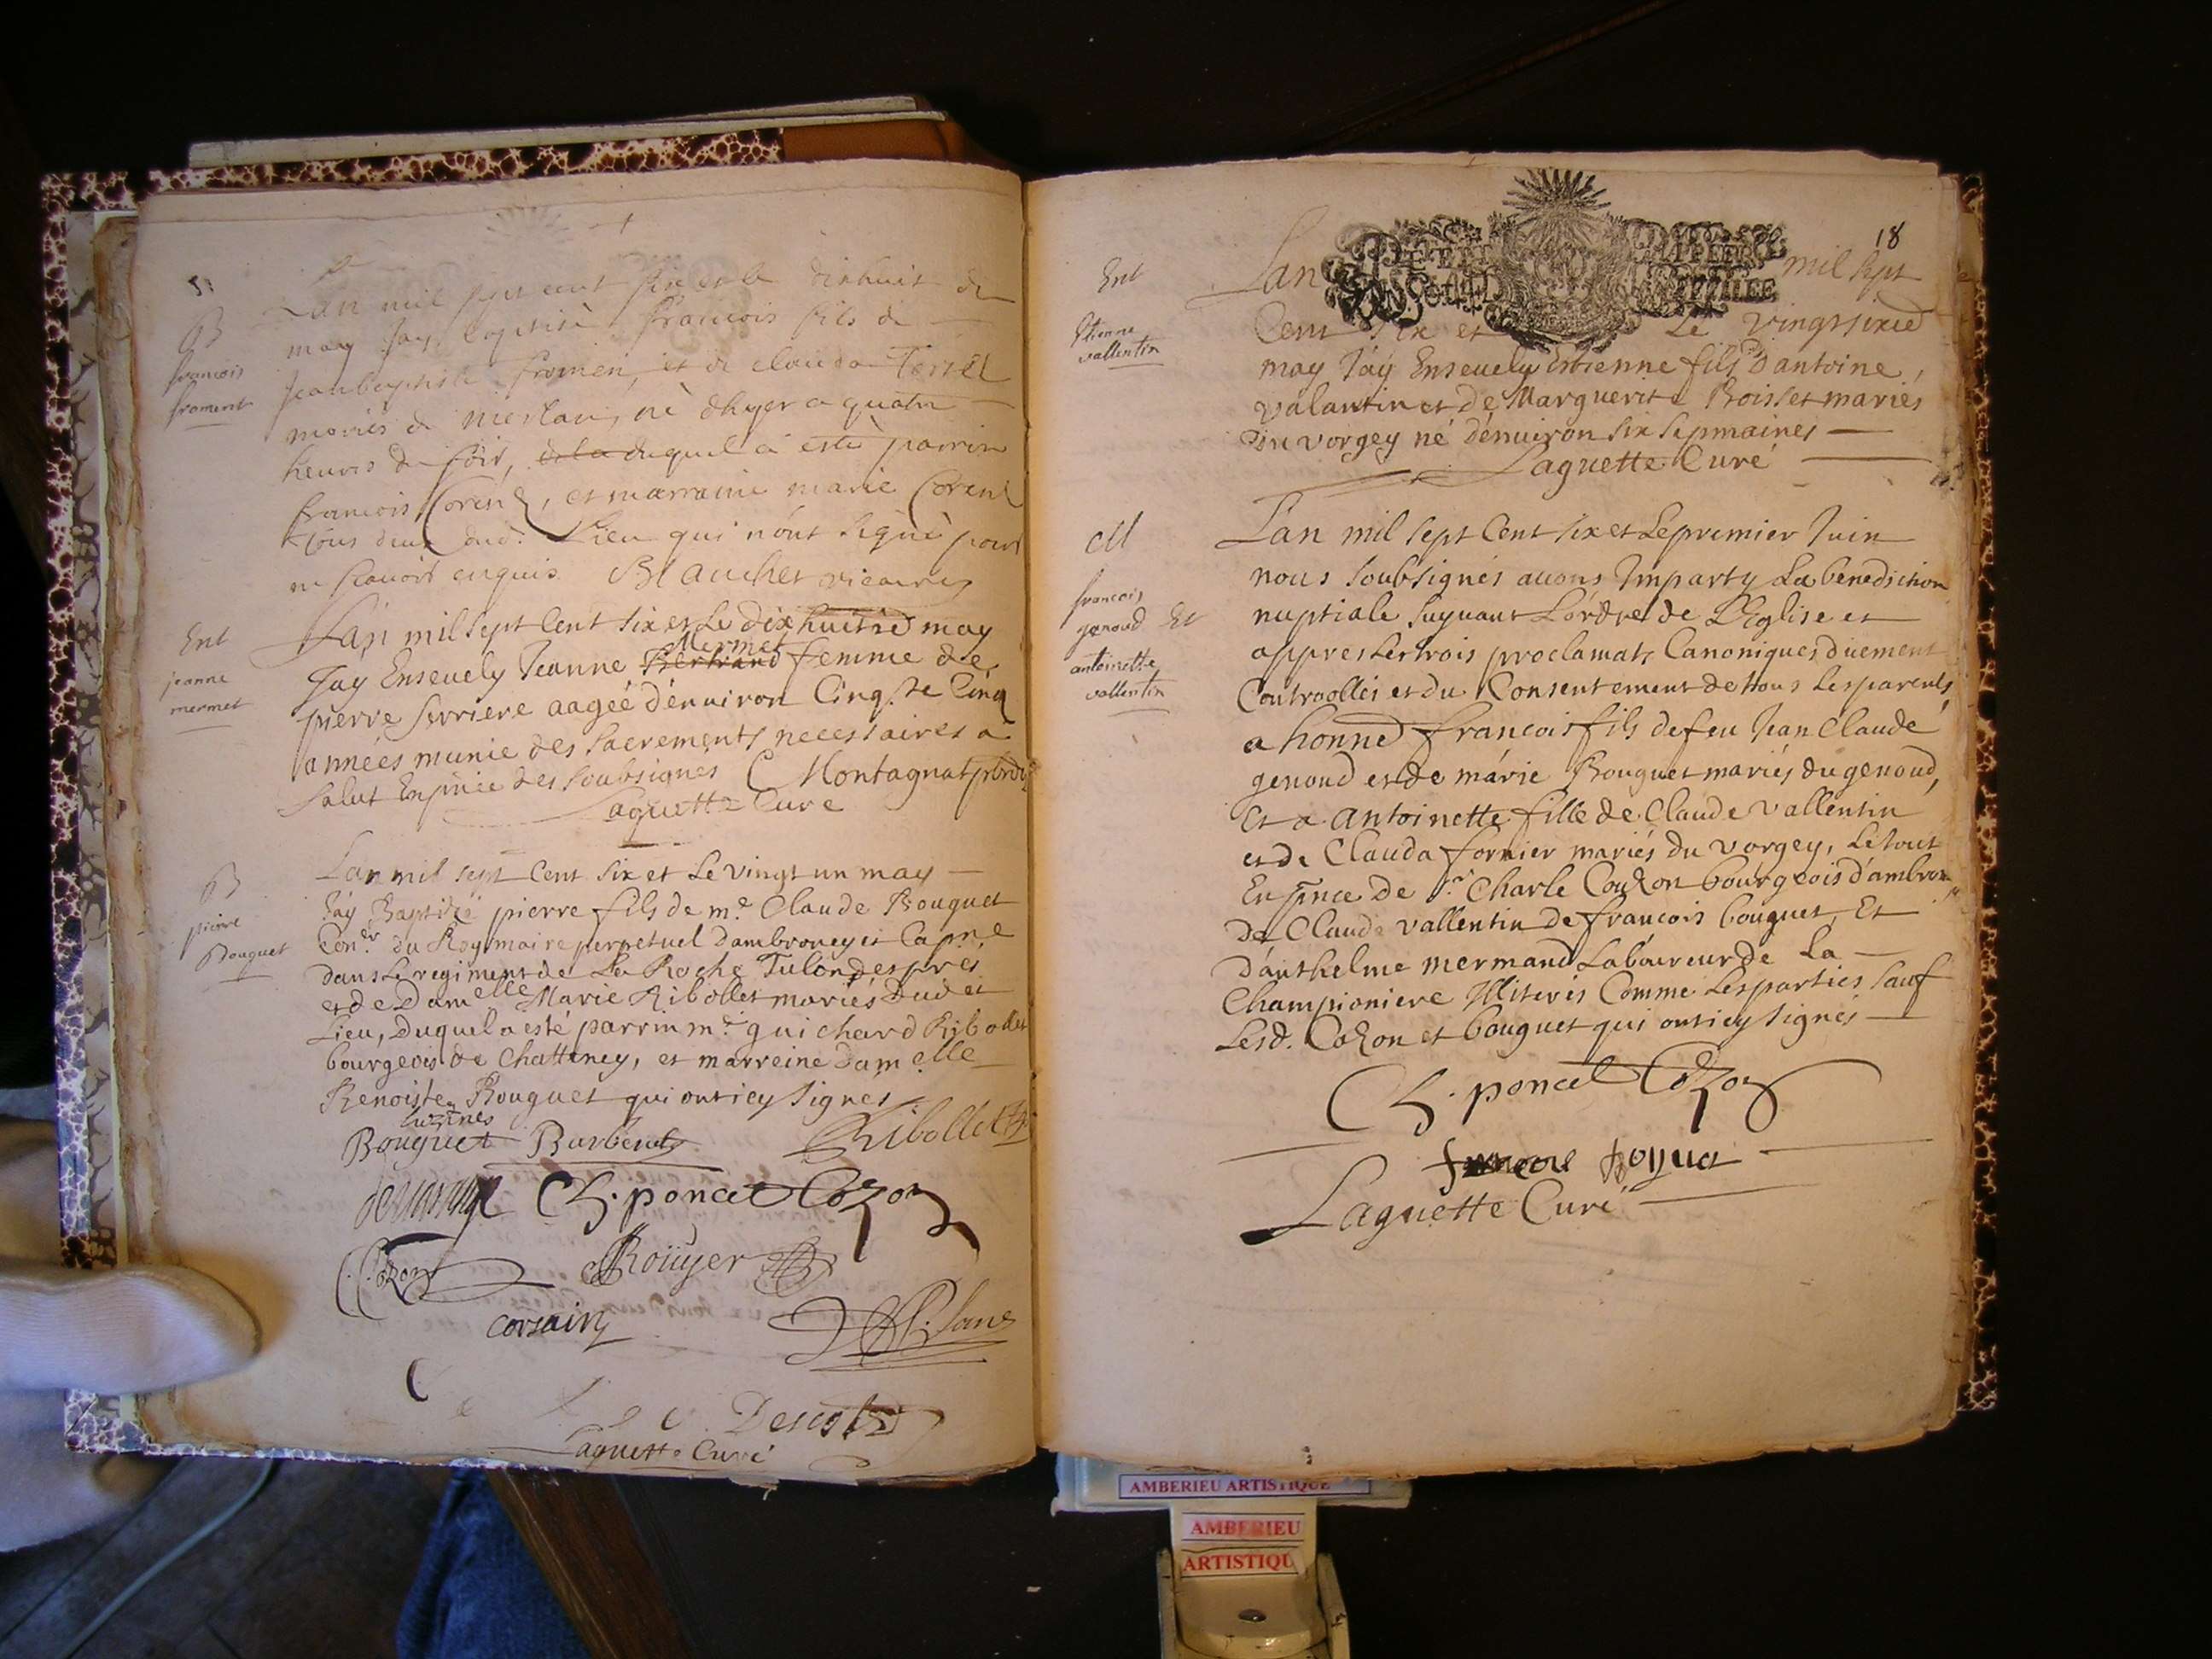 B
francois
froment
Lan mil sept cent six et le dixhuit de
may Jay baptisé francois fils de
Jeanbaptiste fromen et de clauda Terrel
mariés de merlan, né dhyer a quatre
heures du soir, dela duquel a esté parrin
francois Coren, et marraine marie Coren
tous deux dud. Lieu qui nont signé pour
ne scavoir enquis. Blanchet vicaire
Ent
jeanne
mermet
Lan mil sept Cent six et Le dix huitie may
Jay Enseuely Jeanne Bertrand Mermet femme de
pierre ferriere aagée denuiron Cinq.te Cinq
années munie des Sacrements necessaires a
salut En pnce des soubsignes C Montagnat pbre
Laguette Cure
B
pierre
Bouguet
Lan mil sept Cent six et Le vingt un may
Jay Baptizé pierre fils de me Claude Bouguet
Con.er du Roy maire perpetuel dambronay et Capne
dans Le regiment de La Roche Tulon despres
et de Damelle Marie Ribollet mariés dud et
Lieu, Duquel a esté parrin mr guichard Ribollet
bourgeois de Chatteney, et marreine damelle
Benoiste Bouguet qui ont icy signes
Bouguet Barbeut Ribollet
Ch. poncet Cozon
C. Cozon Roüyer
corsain
Laguette Curé
18
Ent
Etienne
vallentin
Lan mil sept
Cent six et Le vingt sixie
may Jay Enseuely Estienne fils Dantoine
valantin et de Marguerite Boisset mariés
Du vorgey né denuiron six sepmaines
Laguette Curé
M
francois
genoud Et
antoinette
vallentin
Lan mil sept Cent six et Le premier Juin
nous soubsignés auons Imparty La benediction
nuptiale suyuant Lordre de L'Eglise et
appres Les trois proclamats Canoniques duement
Controollés et du Consentement de tous Les parents,
a honne francois fils de feu Jean Claude
genoud et de marie Bouguet mariés du genoud,
Et a antoinette fille de Claude vallentin
et de Clauda fornier mariés du vorgey, Le tout
En pnce de sr Charle Cozon bourgeois dambronay
De Claude vallentin de francois bouguet, Et
danthelme mermand Laboureur de La
Championiere Illiterés Comme Les parties sauf
Lesd. Cozon et bouguet qui ont icy signés
Ch. poncet Cozon
Laguette Curé
AMBERIEU ARTISTIQUE
AMBERIEU
ARTISTIQU